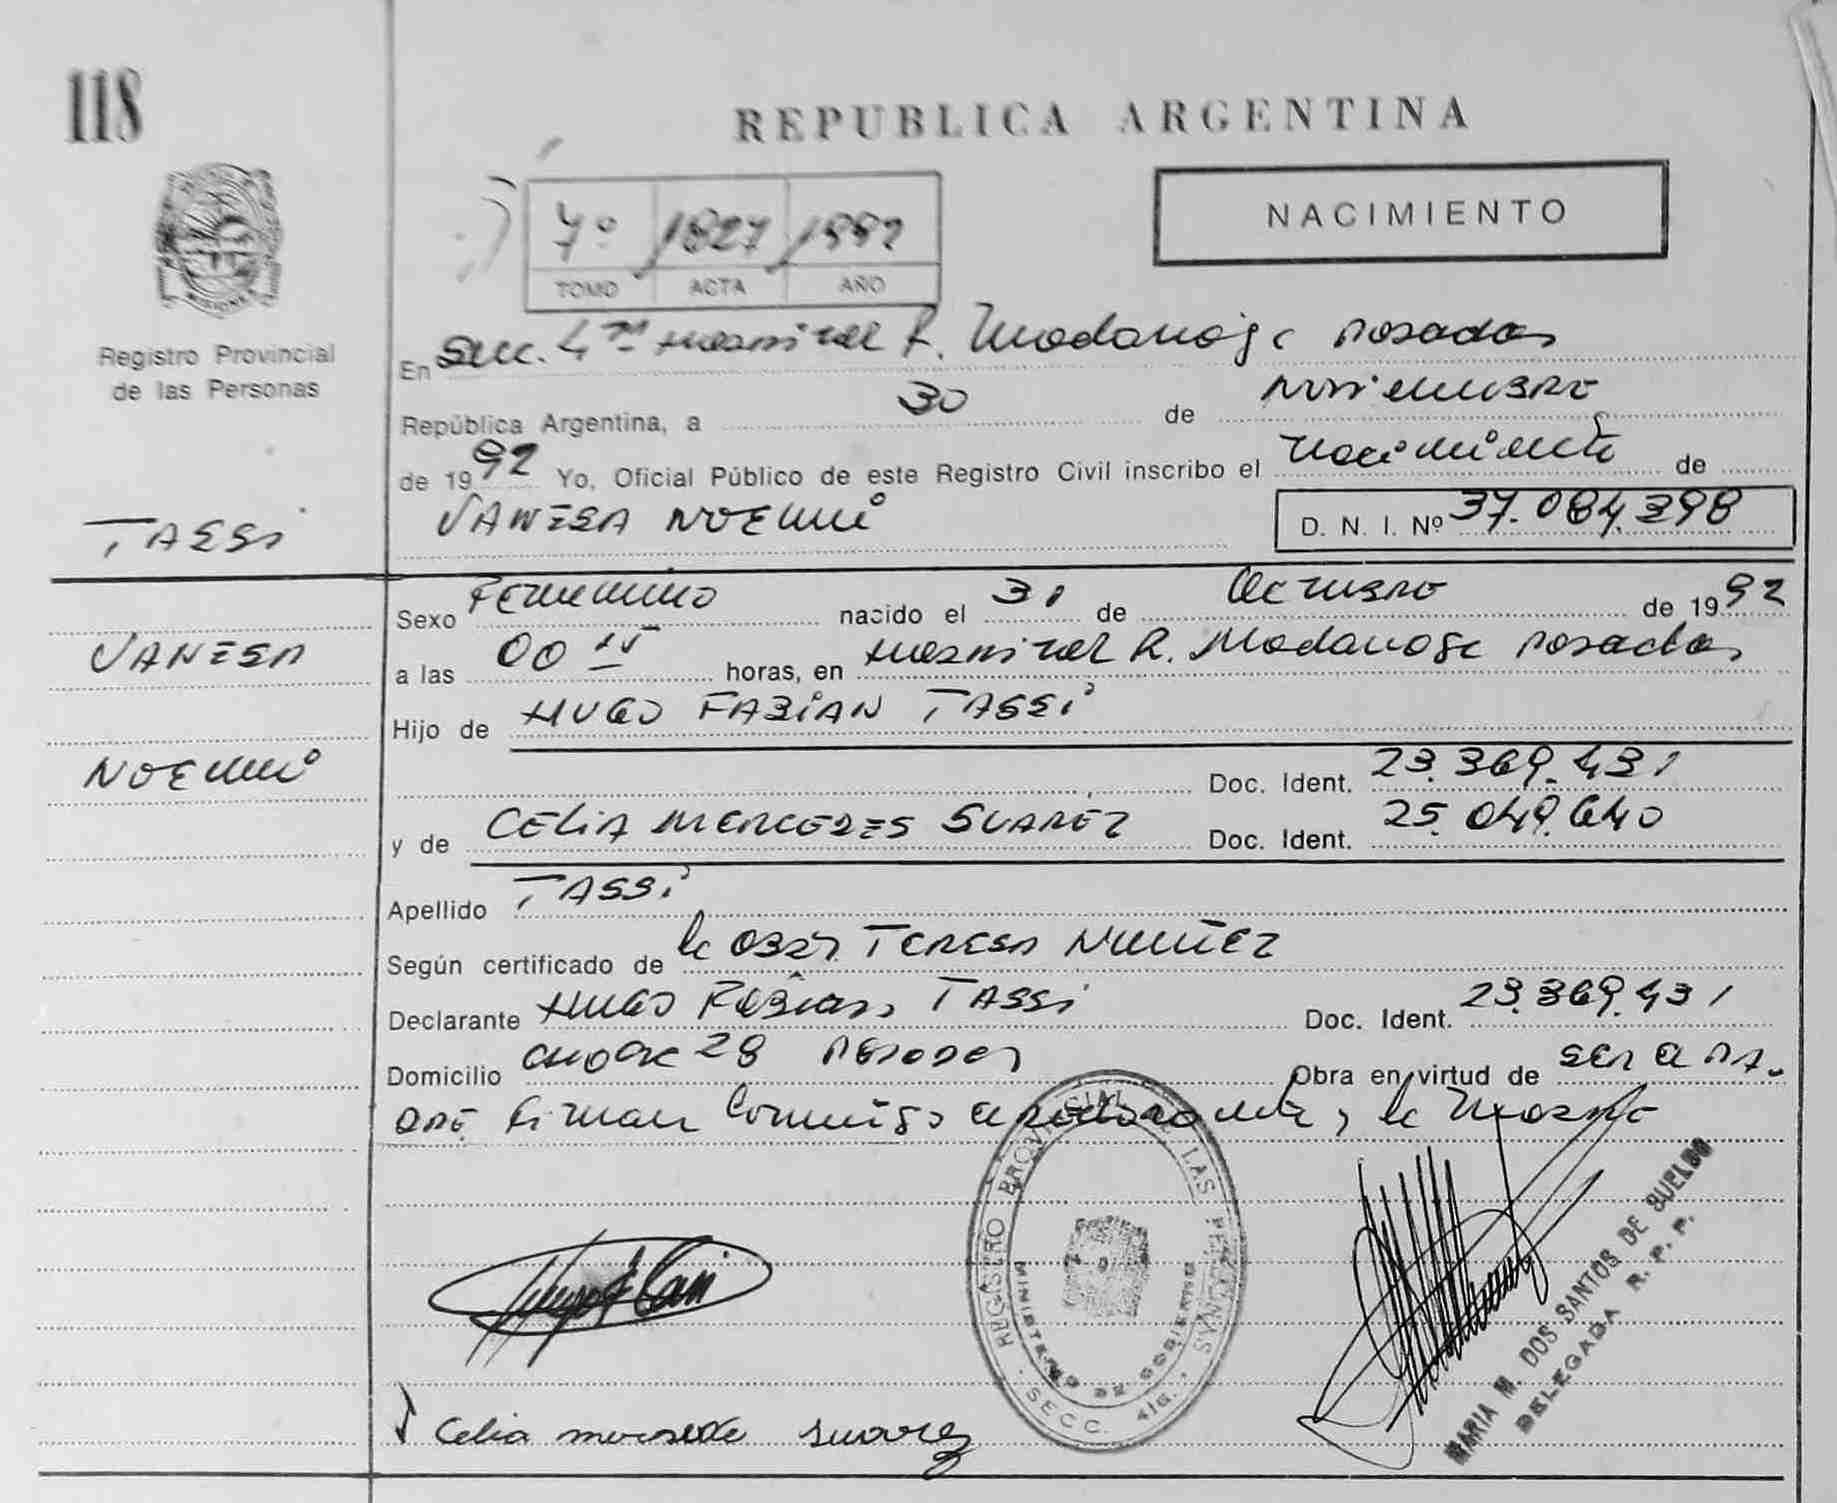 118
REPUBLICA ARGENTINA
7º 1827 1992
TOMO ACTA AÑO
NACIMIENTO
Registro Provincial
de las Personas
En Secc. 4ta Hospital R. Madariaga Posadas
República Argentina, a 30 de Noviembre
de 1992 Yo, Oficial Público de este Registro Civil inscribo el Nacimiento de
VANESA NOEMÍ D. N. I. Nº 37.084.398
TASSI
Sexo Femenino nacido el 31 de Octubre de 1992
VANESA
a las 00 15 horas, en Hospital R. Madariaga Posadas
Hijo de HUGO FABIÁN TASSI
NOEMÍ
Doc. Ident. 23.369.431
y de CELIA MERCEDES SUAREZ Doc. Ident. 25.049.640
Apellido TASSI
Según certificado de la Obst. TERESA NUÑEZ
Declarante HUGO FABIAN TASSI Doc. Ident. 23.369.431
Domicilio 28 Posadas Obra en virtud de ser el pa-
dre firman conmigo el declarante y la madre
REGISTRO PROVINCIAL DE LAS PERSONAS
MINISTERIO DE GOBIERNO
SECC. 4ta.
MARIA M. DOS SANTOS DE SUELDO
DELEGADA R. P. P.
Celia mersede suarez